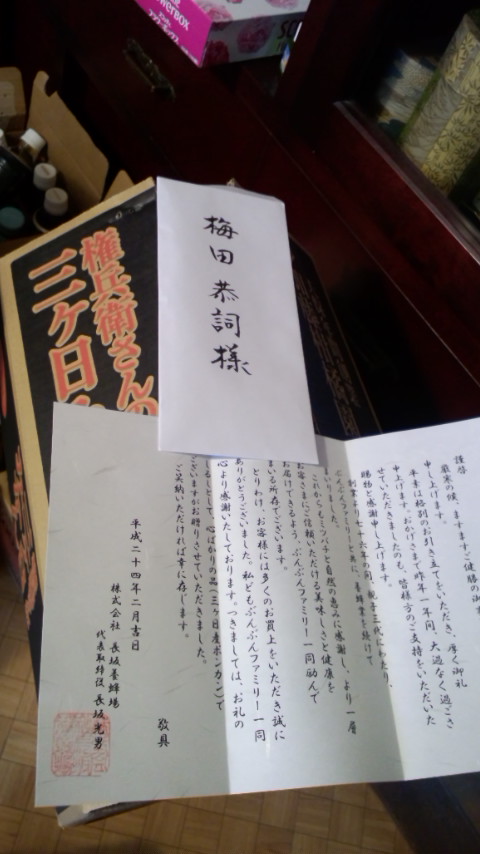 werbox
フラワーボックス
権兵衛さんの
三ケ日
梅田恭詞様
謹啓
厳寒の候、ますますご健勝の
申し上げます。
平素は格別のお引き立てをいただき、厚く御礼
申し上げます。おかげさまで昨年一年間、大過なく過ごさ
せていただきましたのも、皆様方のご支持をいただいた
賜物と感謝申し上げます。
創業より七十六年の間、親子三代にわたり、
ぶんぶんファミリーと共に、養蜂業を続けて
まいりました。
これからもミツバチと自然の恵みに感謝し、より一層
お客さまにご信頼いただける美味しさと健康を
お届けできるよう、ぶんぶんファミリー一同励んで
まいる所存でございます。
とりわけ、お客様には多くのお買上をいただき誠に
ありがとうございました。私どもぶんぶんファミリー一同
心より感謝いたしております。つきましては、お礼の
しるしとして、心ばかりの品(三ケ日産ポンカン)で
ございますがお贈りさせていただきました。
ご笑納いただければ幸に存じます。
敬具
平成二十四年二月吉日
株式会社 長坂養蜂場
代表取締役 長坂光男